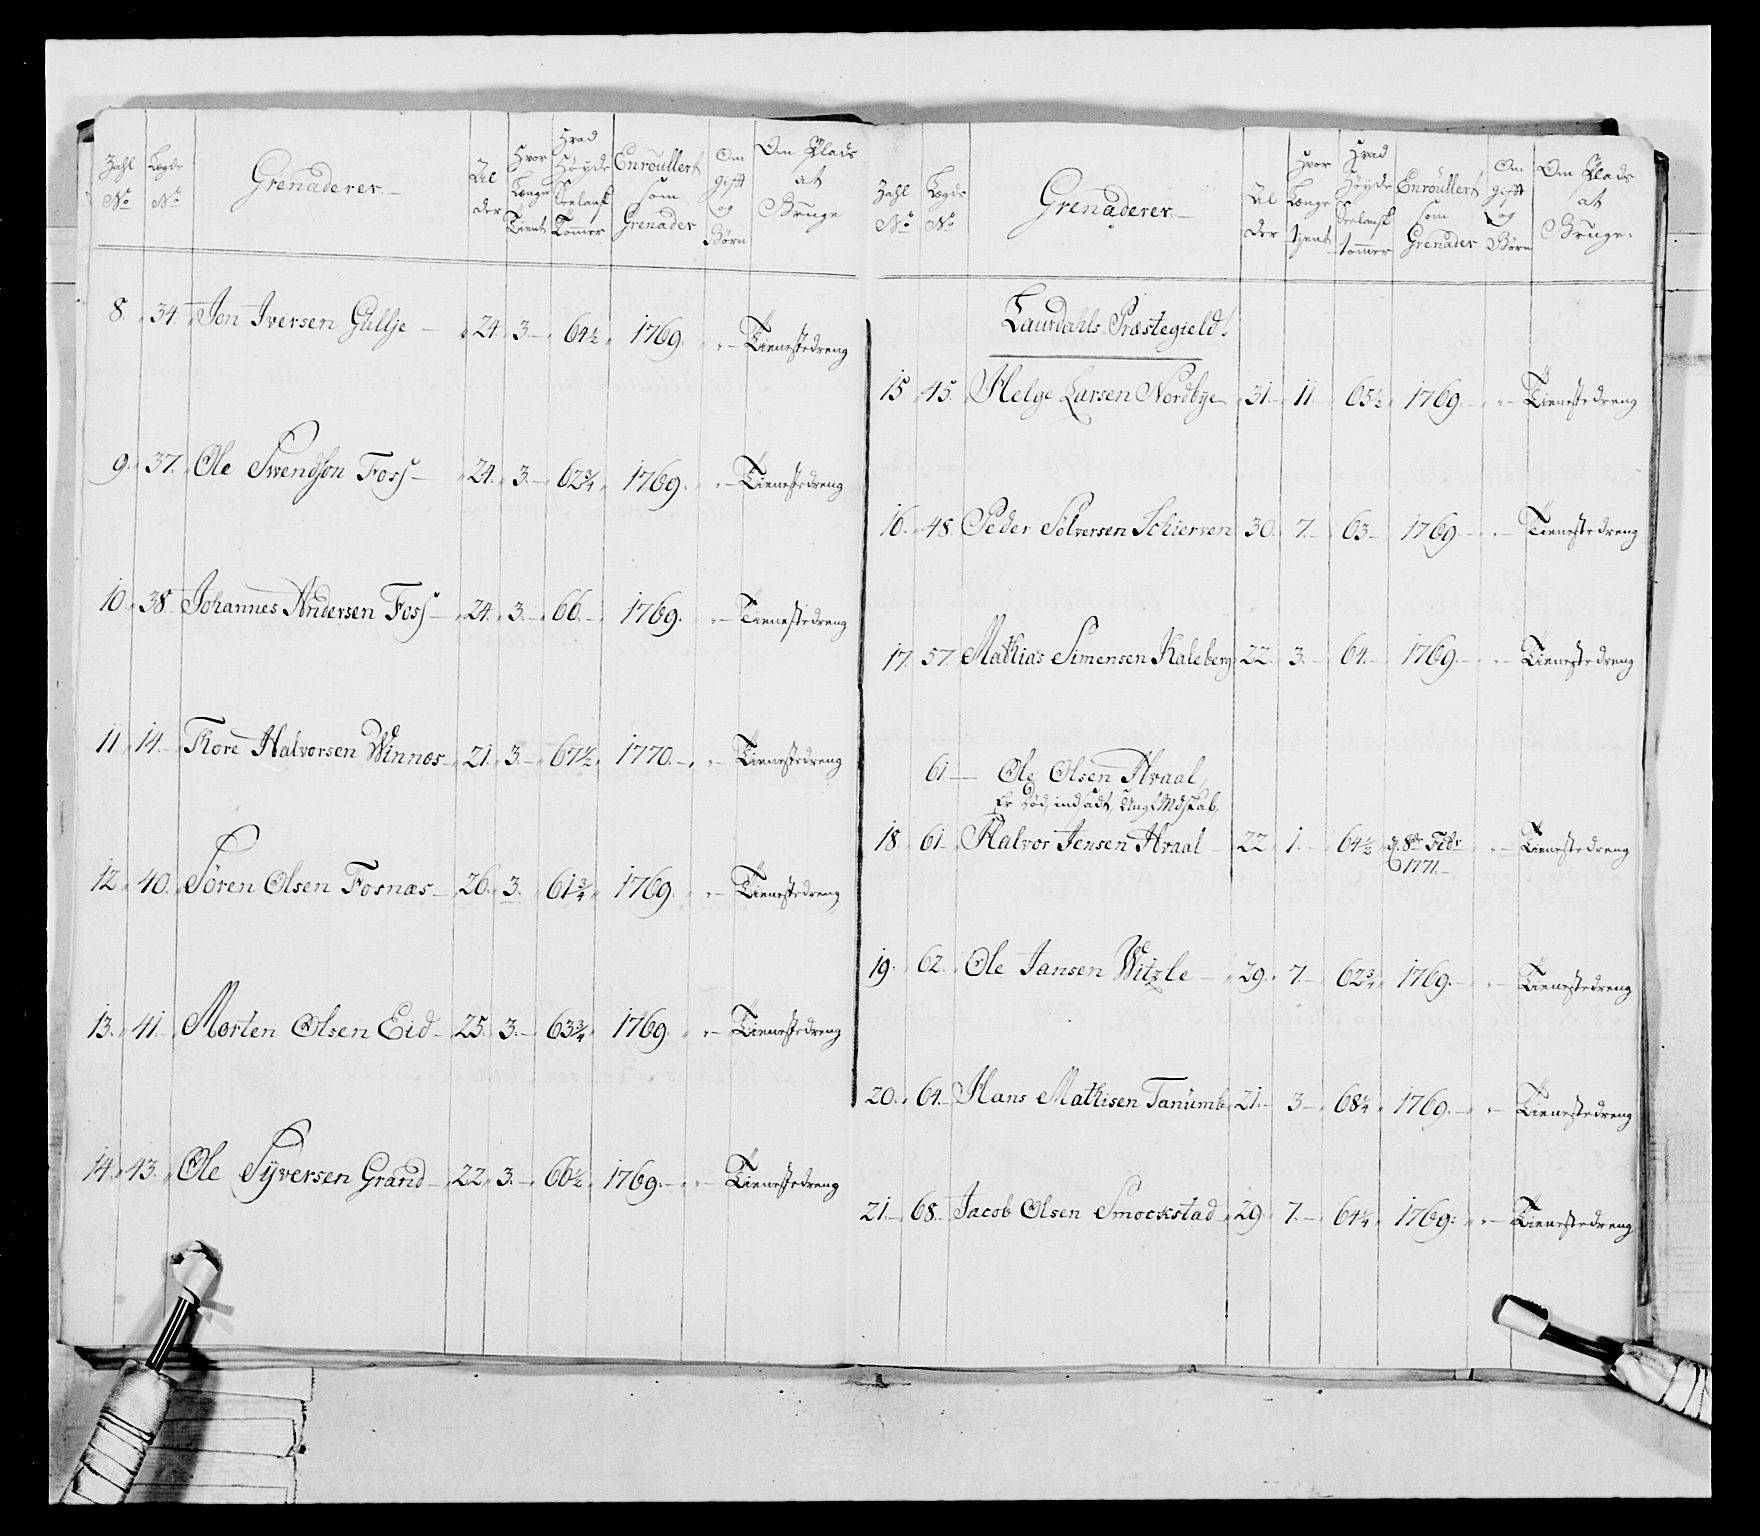 Zahl No | Lægds No | Grenaderer | Alder | Hvor Længe Tient | Hvad Höyde Seelansk Tommer | Enroullert som Grenader | Om gifft og Börn | Om Plads at Bruge
8. 34. Jon Iversen Gullje — 24. 3. — 64½ 1769. „ — Tienestedreng
9. 37. Ole Svendsøn Foss — 24. 3. — 62¾ 1769. „ — Tienestedreng
10. 38. Johannes Andersen Foss — 24. 3. — 66. — 1769. „ — Tienestedreng
11. 14. Thore Halvorsen Winnes — 21. 3. — 67½ 1770. — „ — Tienestedreng
12. 40. Sören Olsen Fosnæs — 26. 3. 61¾ 1769. „ — Tienestedreng
13. 41. Morten Olsen Eid — 25. 3. — 63¾ 1769. „ — Tienestedreng
14. 43. Ole Syversen Grand — 22. 3. — 66½ 1769. — „ — Tienestedreng
Zahl No | Lægds No | Grenaderer | Alder | Hvor Længe tient | Hvad Höyde Seelansk tommer | Enroullert som Grenader | Om gifft og Börn | Om Plads at Bruge.
Laurdahls Præstegield.
15. 45. Helge Larsen Nordbye 31. — 11. — 65½ 1769. — „ — Tienestedreng
16. 48. Peder Sölversen Schierven 30. 7. — 63 — 1769. — „ — Tienestedreng
17. 57. Mathias Simensen Kaleberg 22. 3. — 64. — 1769. — „ — Tienestedreng
61 — Ole Olsen Hvaal,
Er död, indsadt Ungl Mdskab,
18. 61 — Halvor Jensen Hvaal — 22 1. — 64½ d. 8de Febr „ — Tienestedreng
1771. —
19. 62. Ole Jansen Witzle — 29. 7. — 62¾ 1769. — „ — Tienestedreng
20. 64. Hans Mathisen Tanumb 21. — 3 — 68¼ 1769. — „ — Tienestedreng
21. — 68. Jacob Olsen Smockstad 29. 7. — 64¼ 1769. „ — Tienestedreng